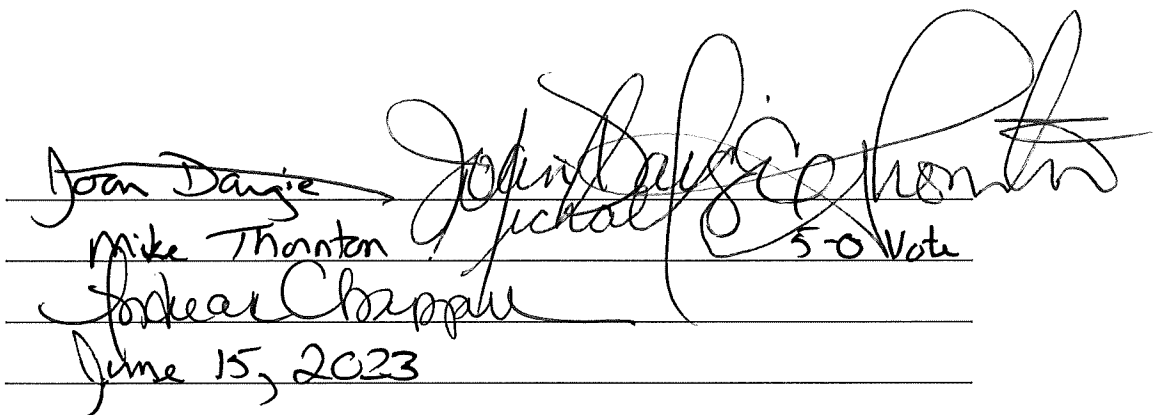 Joan Dargie Joan Dargie
Mike Thornton Michael Thornton 5-0 Vote
June 15, 2023